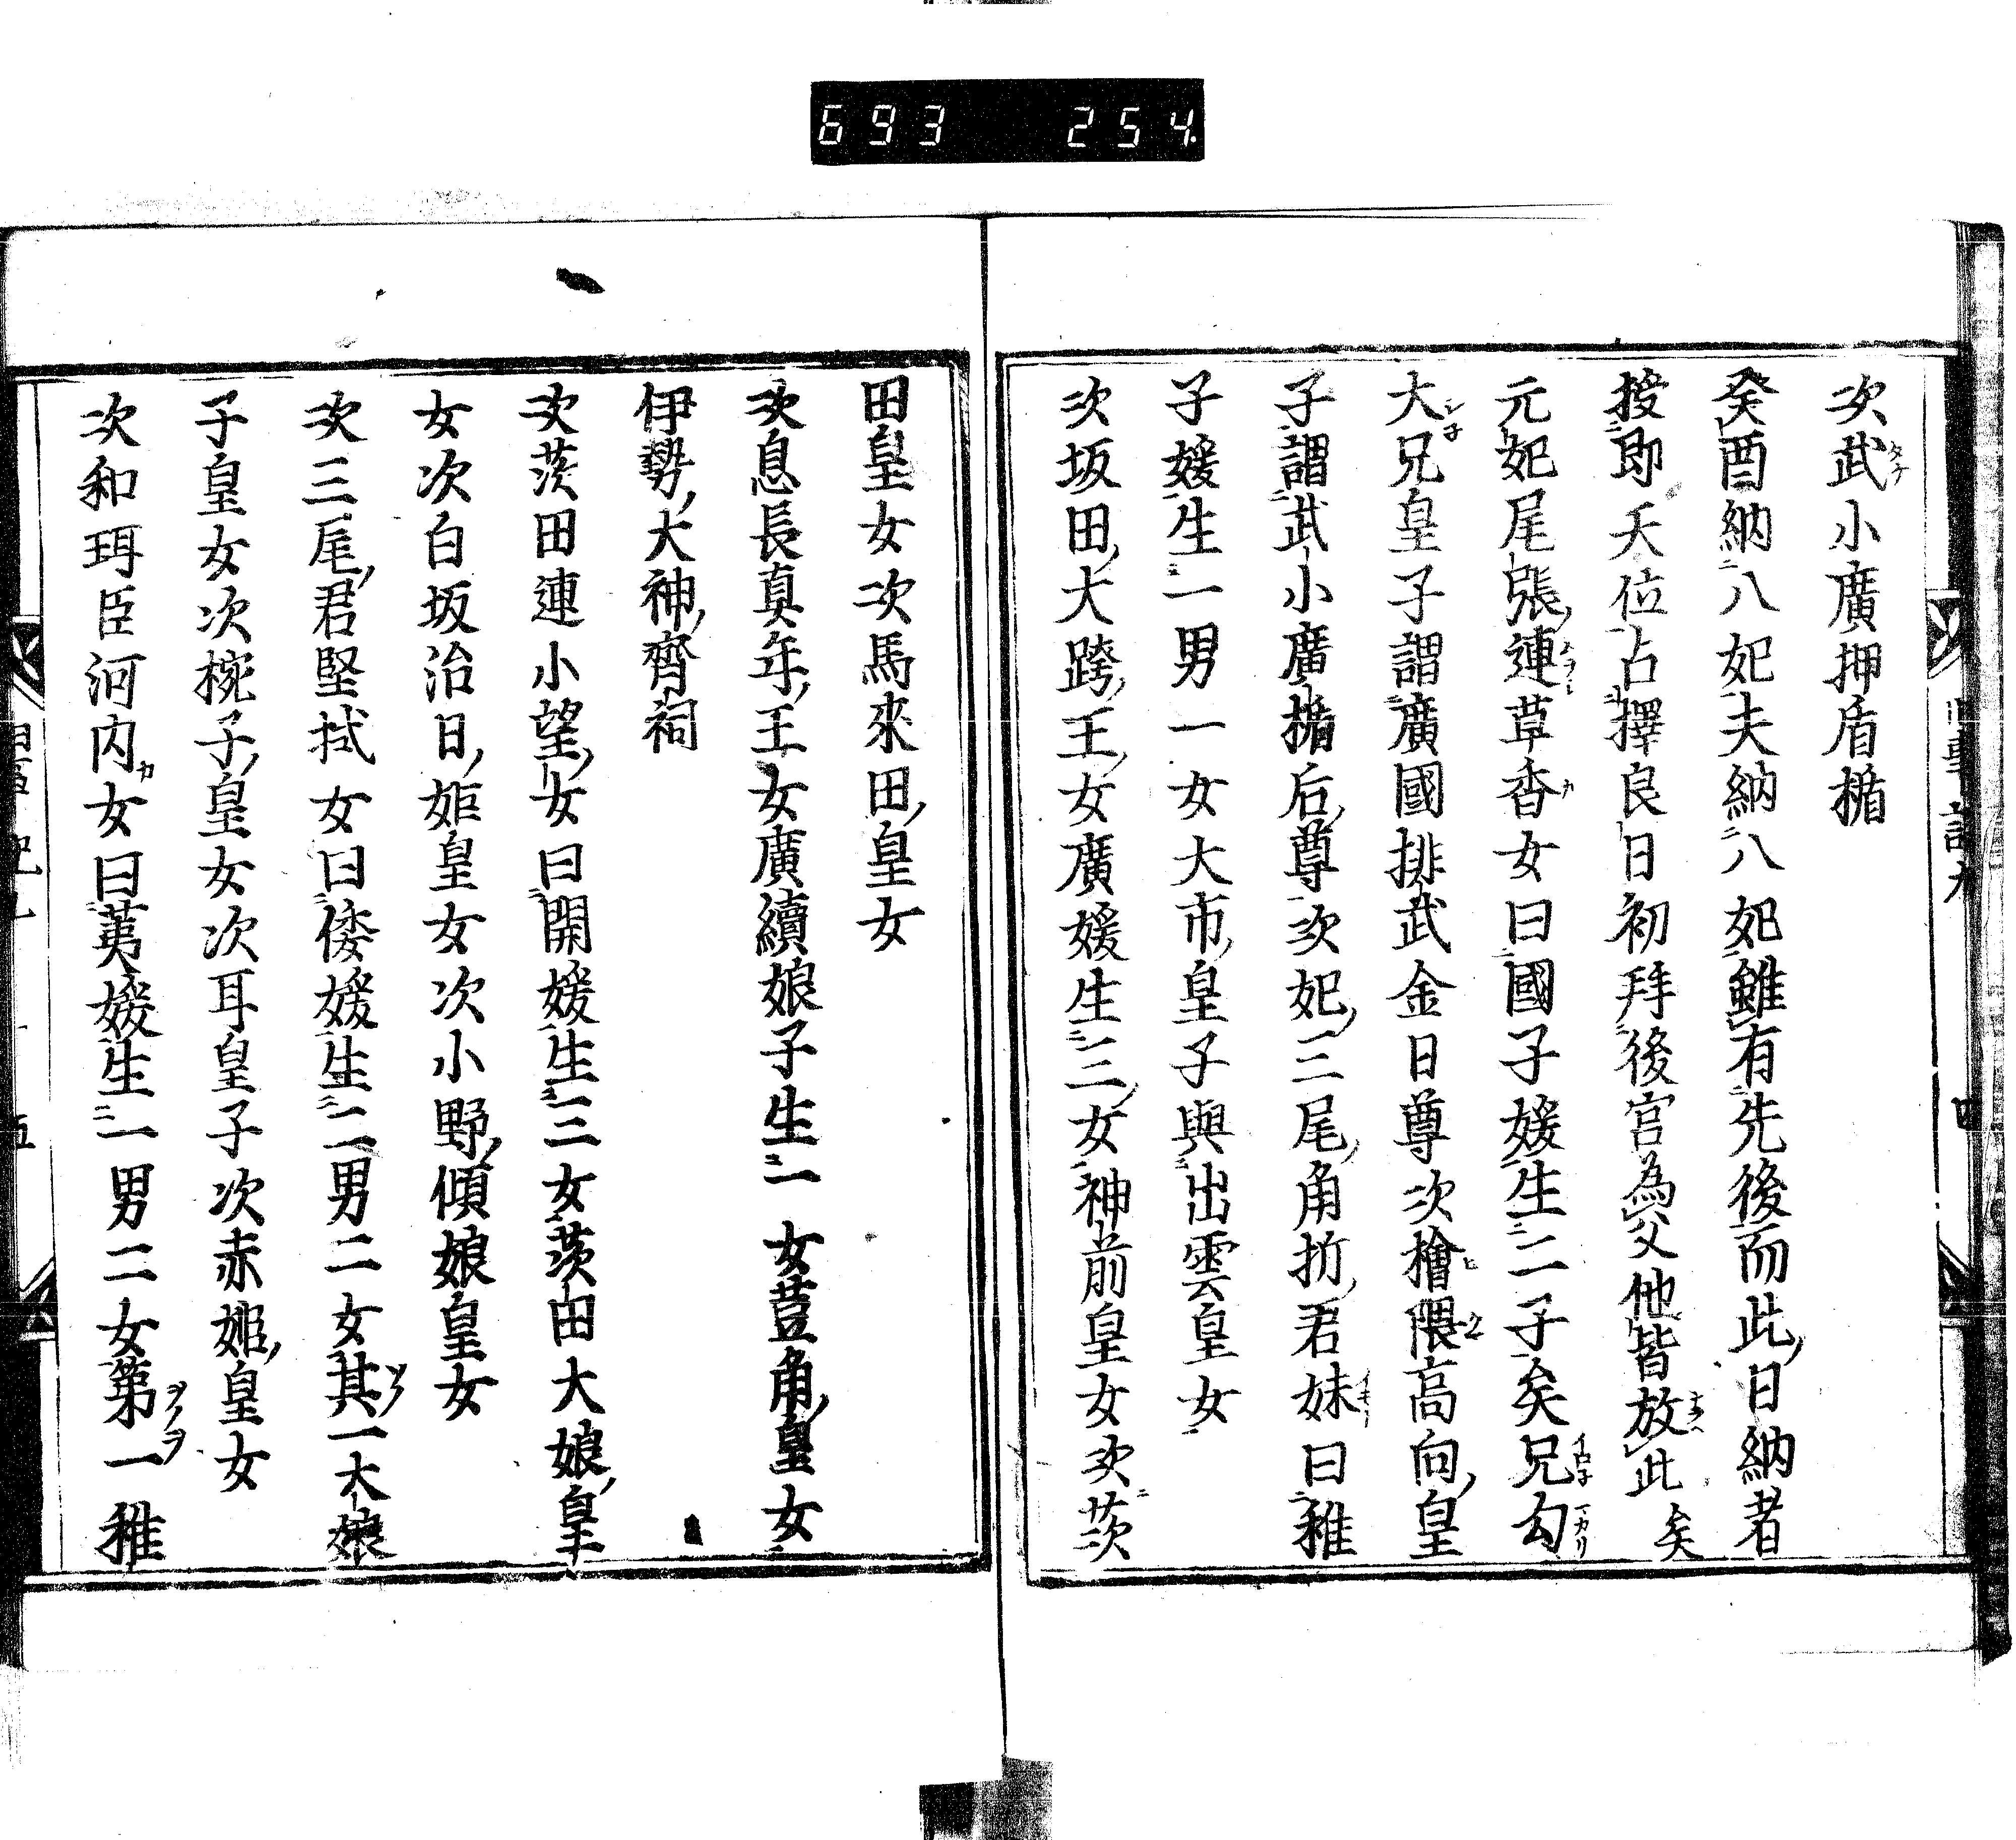 693 254.
次武小廣押盾楯
癸酉納八妃夫納八妃雖有先後而此日納者
授即天位占擇良日初拜後宮為父他皆放此矣
元妃尾張連草香女曰國子媛生二子矣兄勾
大兄皇子謂廣國排武金日尊次檜隈高向皇
子謂武小廣楯后尊次妃三尾角折君妹曰稚
子媛生一男一女大市皇子與出雲皇女
次坂田大跨王女廣媛生三女神前皇女次茨
田皇女次馬來田皇女
次息長真年王女廣續娘子生一女荳角皇女
伊勢大神齊祠
次茨田連小望女曰開媛生三女茨田大娘皇
女次白坂治日姫皇女次小野傾娘皇女
次三尾君堅拭女曰倭媛生二男二女其一大娘
子皇女次椀子皇女次耳皇子次赤姫皇女
次和珥臣河内女曰荑媛生一男二女第一稚